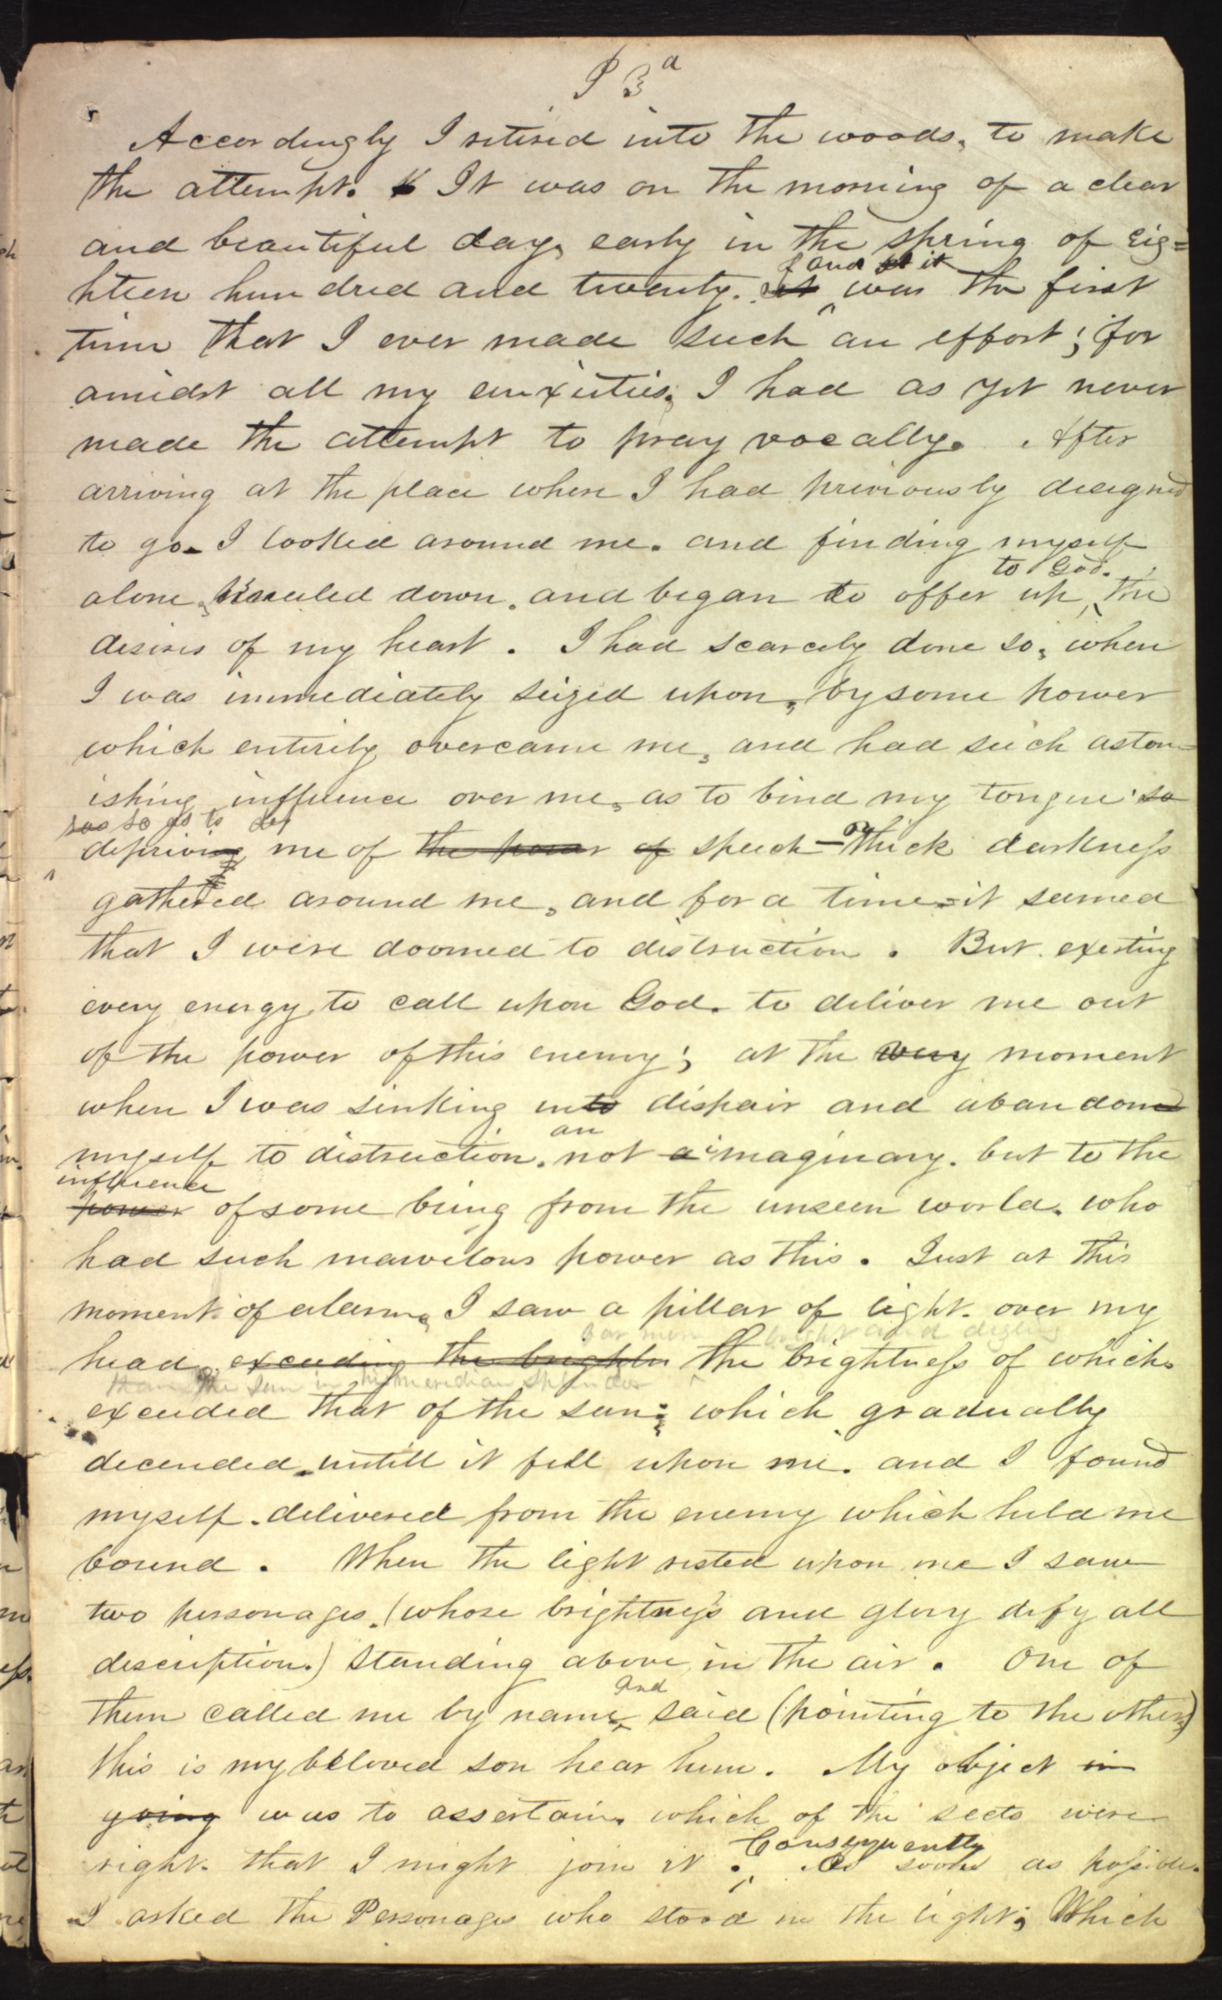 P 3 a
Accordingly I retired into the woods, to make
the attempt. It was on the morning of a clear
and beautiful day, early in the spring of eig=
hteen hundred and twenty. it was the first
and it
time that I ever made such an effort; for
amidst all my anxieties, I had as yet never
made the attempt to pray vocally. After
arriving at the place where I had previously designed
to go. I looked around me. and finding myself
to God.
alone, kneeled down, and began to offer up, the
desires of my heart. I had scarcely done so, when
I was immediately seized upon, by some power
which entirely overcame me, and had such aston=
ishing influence over me, as to bind my tongue so
so as to
depriving me of the power of speech - thick darkness
gathered around me, and for a time it seemed
that I were doomed to distruction. But exerting
every energy to call upon God. to deliver me out
of the power of this enemy; at the very moment
when I was sinking into dispair and abandoned
an
myself to distruction. not a imaginary. but to the
influence
power of some being from the unseen world. who
had such marvelous power as this. Just at this
moment of alarm, I saw a pillar of light. over my
far more bright and
head exceeding the brightn the brightness of which
than the sun in his meridian splendor
exceeded that of the sun; which gradually
decended, untill it fell upon me. and I found
myself. delivered from the enemy which held me
bound. When the light rested upon me I saw
two personages. (whose brightness and glory defy all
description.) standing above in the air. One of
and
them called me by name, said (pointing to the other)
this is my beloved son hear him. My object in
going was to assertain, which of the sects were
Consequently
right. that I might join it. as soon as possible.
I asked the Personages who stood in the light; Which